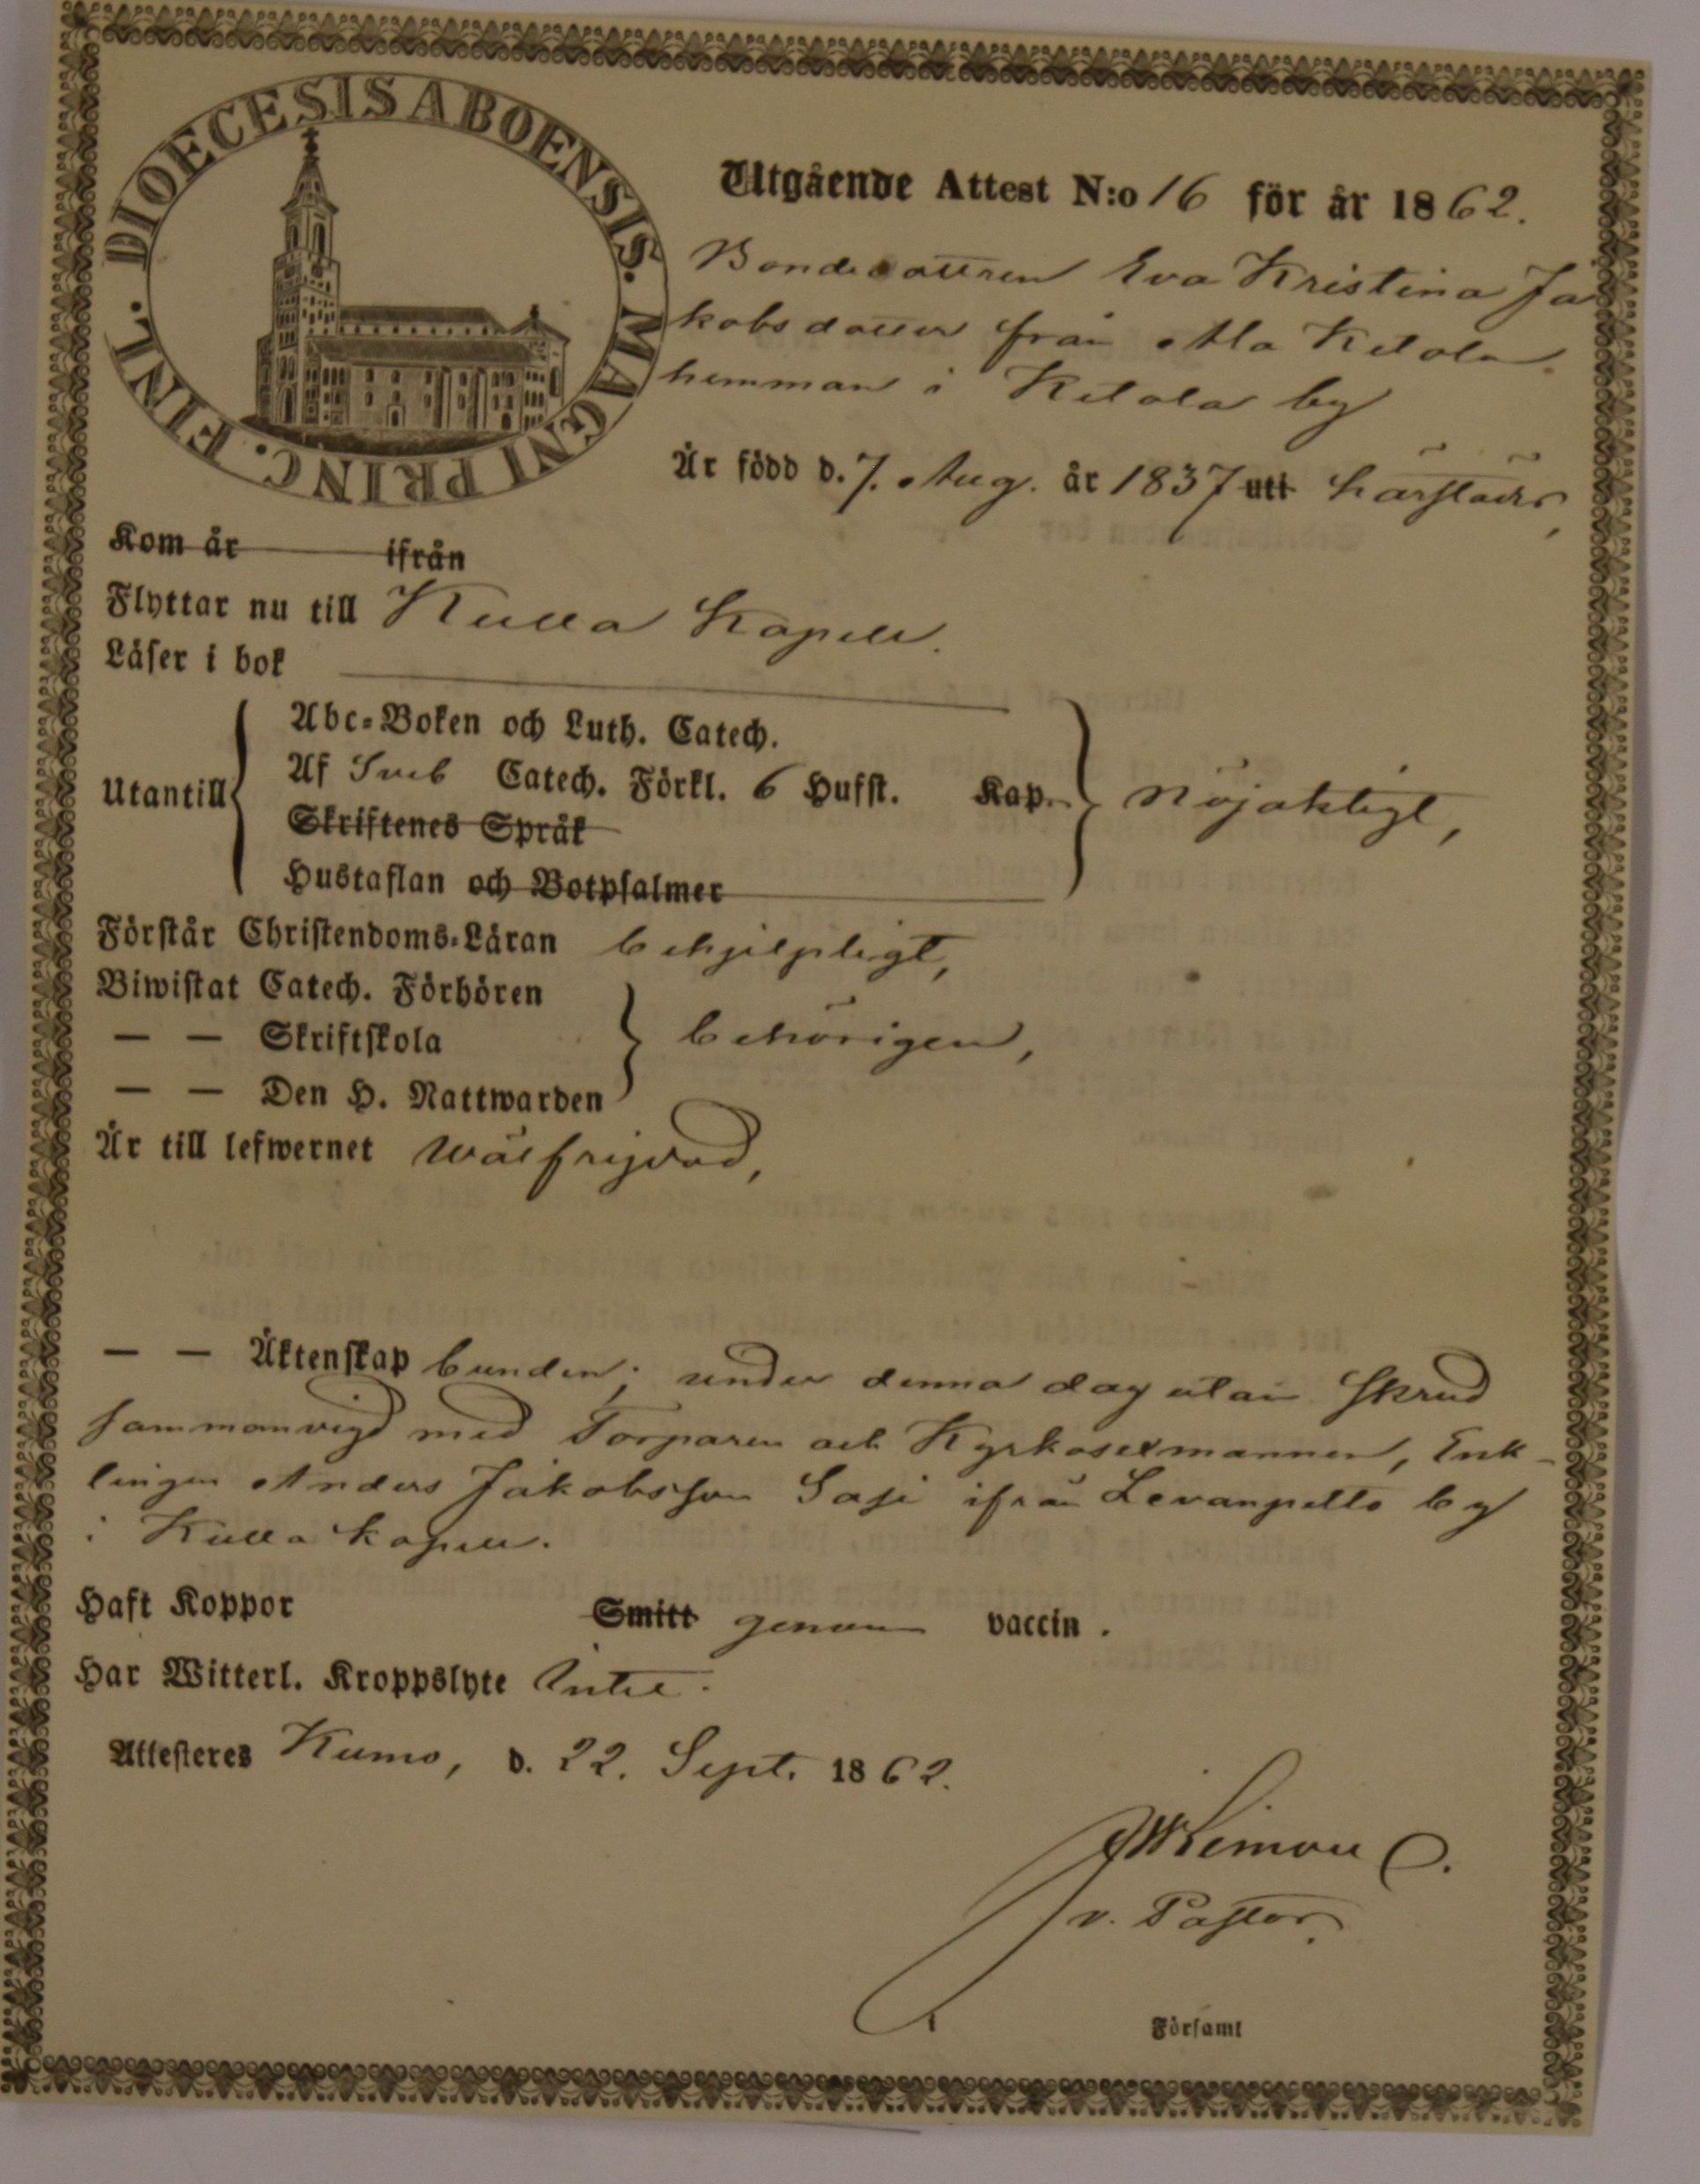 DIOECESIS ABOENSIS. MAGNI PRINC. FINL.
Utgående Attest N:o 16 för år 1862.
Bondedottren Eva Kristina Ja
kobsdotter från Ala Ketola
hemman i Ketola by
Är född d. 7. Aug. år 1837 uti härstädes,
Kom år ifrån
Flyttar nu till Kulla Kapell.
Läser i bok
Utantill
Abc-Boken och Luth. Catech.
Af Sveb Catech. Förkl. 6 Hufst. Kap. nöjaktigt,
Skriftenes Språk
Hustaflan och Botpsalmer
Förstår Christendoms-Läran behjelpligt,
Biwistat Catech. Förhören
— — Skriftskola behörigen,
— — Den H. Nattwarden
Är till lefwernet wälfrejdad,
— — Äktenskap bunden; under denna dag utan skrud
sammanvigd med Torparen och Kyrkosexmannen, Enk-
lingen Anders Jakobsson Sasi ifrån Levanpelto by
i Kulla kapell.
Haft Koppor Smitt genom vaccin.
Har Witterl. Kroppslyte Intet.
Attesteres Kumo, d. 22. Sept. 1862.
v. Pastor.
Församl